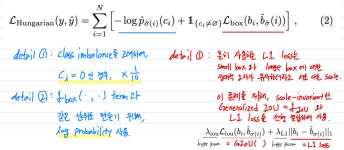 L_Hungarian(y, ŷ) = Σ_{i=1}^{N} [−log p̂_{σ̂(i)}(c_i) + 1_{c_i≠∅} L_box(b_i, b̂_{σ̂}(i))] , (2)
detail ①: class imbalance를
C_i = ∅ 인 경우, × 1/10
detail ②: L_box(·, ·) term과
같은
log probability 사용.
detail ①: 흔히 사용하는 L1 loss는
small box와 large box에
scale.
이 문제를 위해, scale-invariant한
Generalized IOU = L_iou와
L1 loss를 선형 결합하여 사용.
λ_iou L_iou(b_i, b̂_{σ(i)}) + λ_L1 ||b_i − b̂_{σ(i)}||_1
hyper param = GIoU( ) hyper param = L1 loss